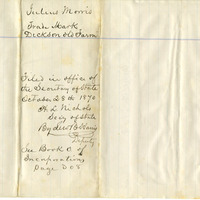 Julius Morris
Trade Mark
Dickson old Farm
Filed in office of
the Secretary of State
October 28th 1870
H. L. Nichols
Secy of State
By
Deputy
See Book C of
Incorporations
Page 208